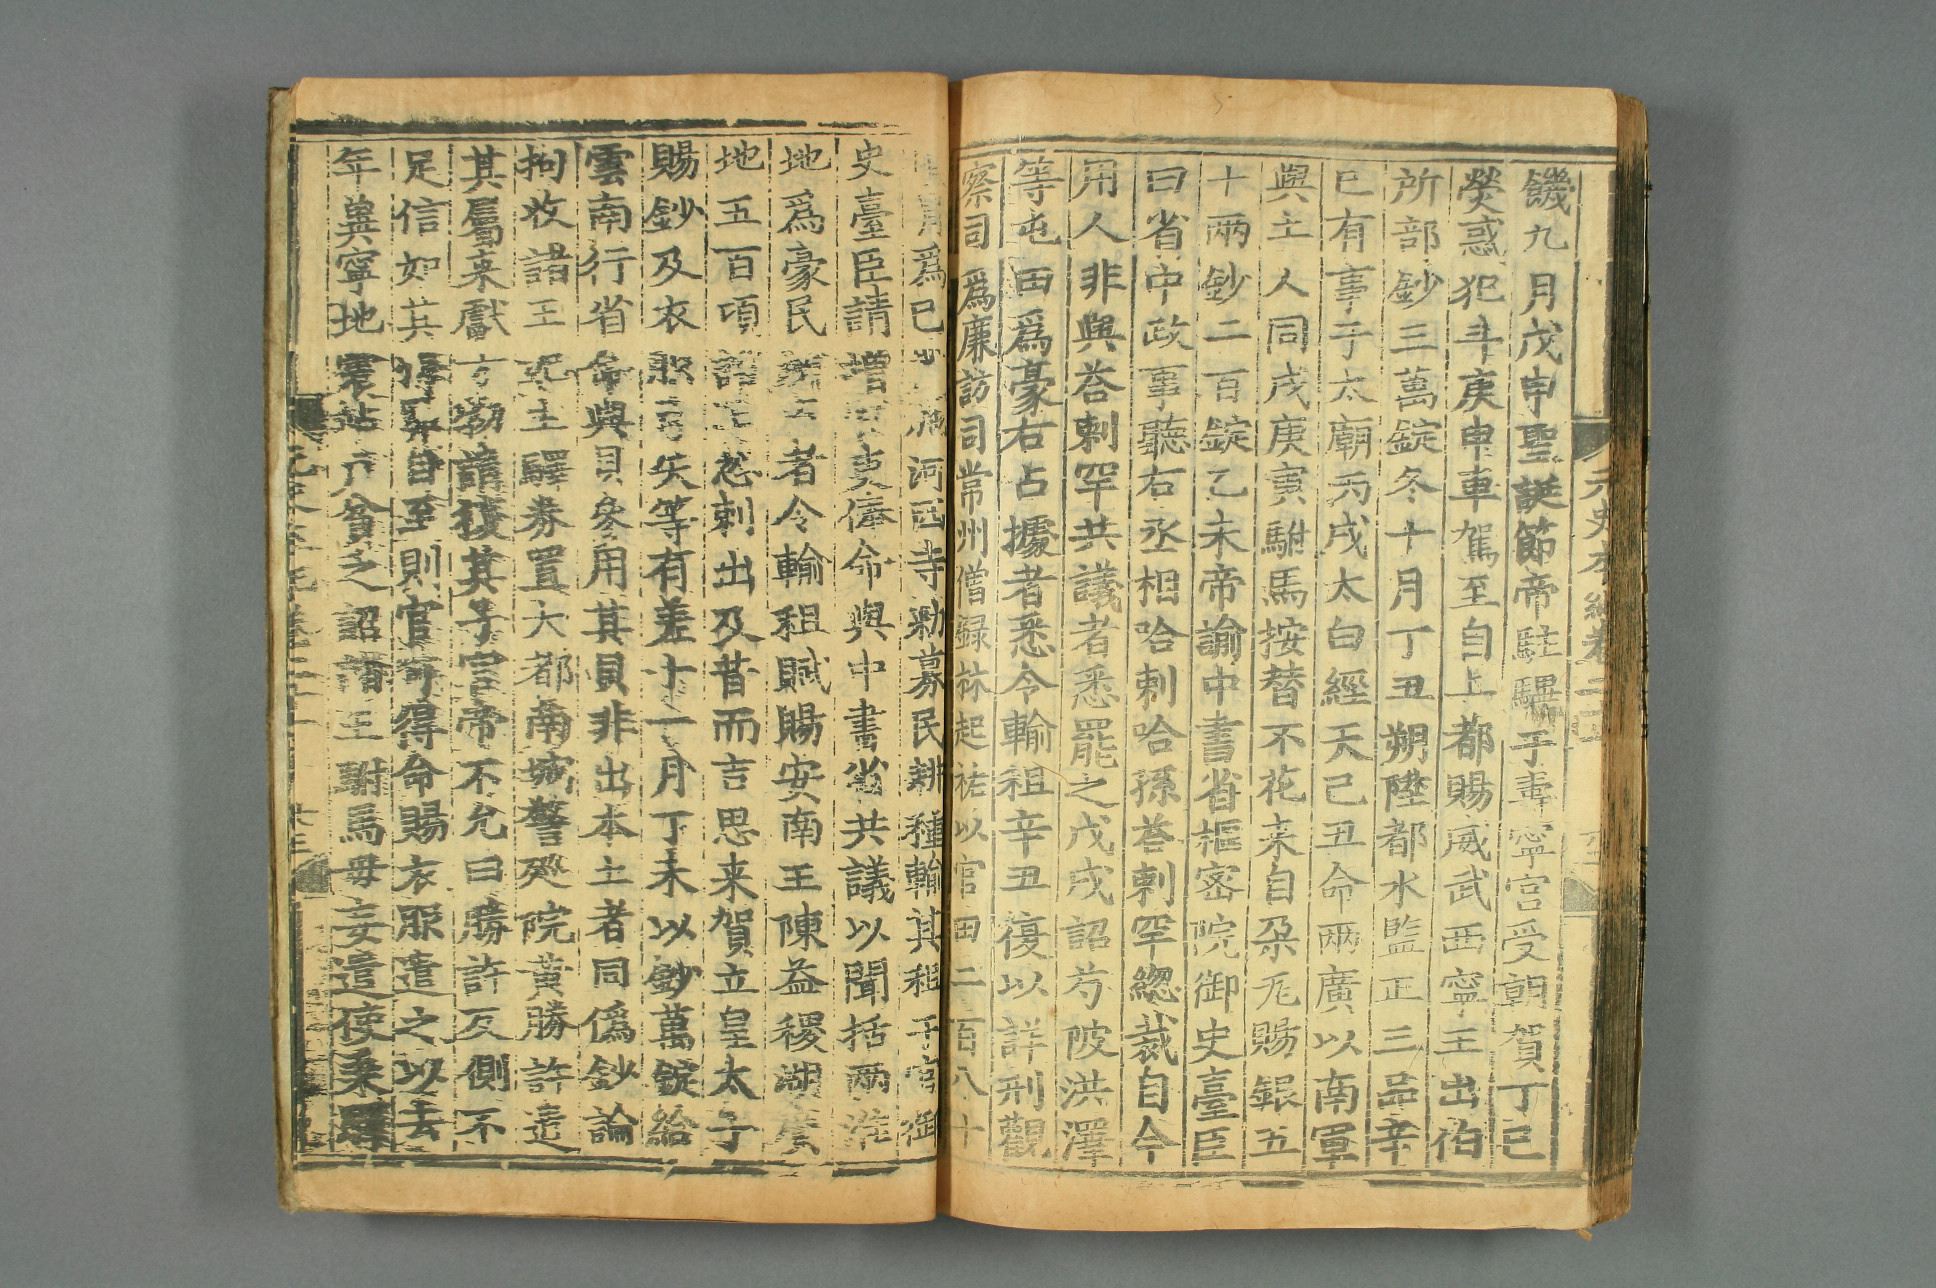 饑九月戊申聖誕節帝駐驆于壽寧宮受朝賀丁巳
熒惑犯斗庚申車駕至自上都賜威武西寧王出伯
所部鈔三萬錠冬十月丁丑朔陞都水監正三品辛
巳有事于太廟丙戌太白經天己丑命兩廣以南軍
與土人同戍庚寅駙馬按替不花来自朶兀賜銀五
十兩鈔二百錠乙未帝諭中書省樞密院御史臺臣
曰省中政事聽右丞相哈剌哈孫荅剌罕總裁自今
用人非與荅剌罕共議者悉罷之戊戌詔芍陂洪澤
等屯田爲豪右占據者悉令輸租辛丑復以詳刑觀
察司爲廉訪司常州僧録林起祐以官田二百八十
爲己河西寺勑募民耕種輸其租于官御
史臺臣請增吏俸命與中書省共議以聞括兩淮
地爲豪民者令輸租賦賜安南王陳益稷湖廣
地五百項剌出及昔而吉思来賀立皇太子
賜鈔及衣服弓矢等有差十一月丁未以鈔萬錠給
雲南行省命與貝參用其貝非出本土者同僞鈔論
拘收諸王土驛券置大都南城警廵院黄勝許遣
其屬来獻方物請復其子官帝不允曰勝許反側不
足信如其自至則官可得命賜衣服遣之以去
年兾寧地震站户貧乏詔諸王駙馬毋妄遣使乗驛